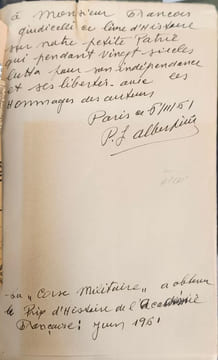 à Monsieur François
Giudicelli ce livre d'Histoire
sur notre petite Patrie
qui pendant vingt siècles
lutta pour son indépendance
et ses libertés - avec les
Hommages des auteurs
Paris ce 5/III/61
P. L. Albertini
Sa „Corse Militaire" a obtenu
le Prix d'Histoire de l'Académie
Française: Juin 1961